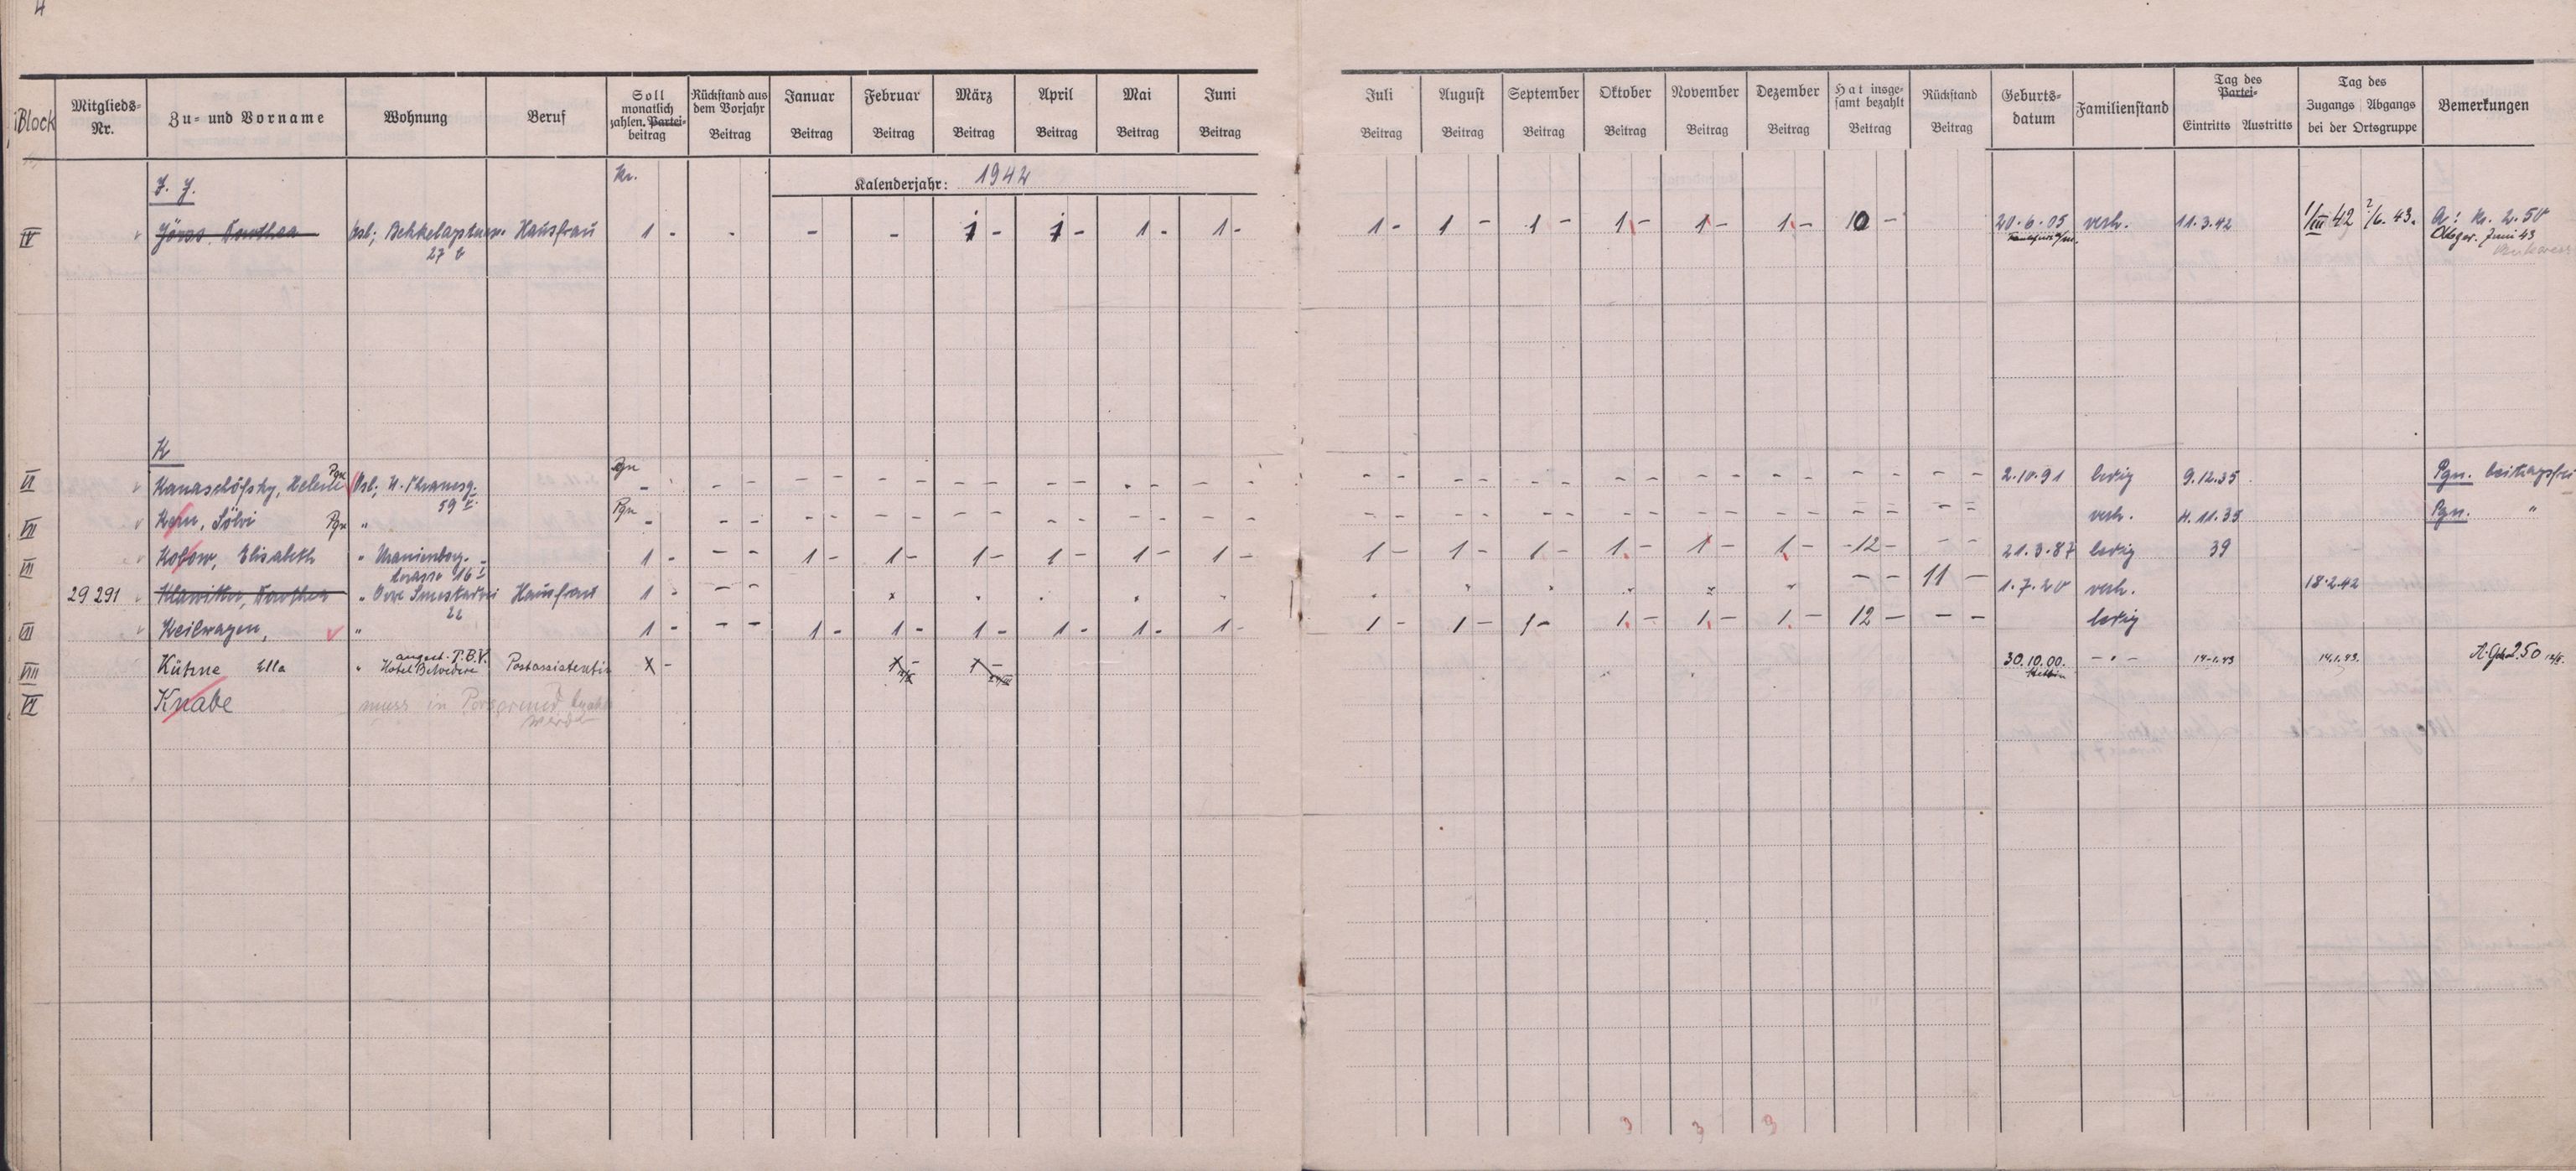 4
iBlock Mitglieds-Nr. Zu- und Vorname Wohnung Beruf Soll monatlich zahlen. Partei-beitrag Rückstand aus dem Vorjahr Beitrag Januar Beitrag Februar Beitrag März Beitrag April Beitrag Mai Beitrag Juni Beitrag Juli Beitrag August Beitrag September Beitrag Oktober Beitrag November Beitrag Dezember Beitrag Hat insge-samt bezahlt Beitrag Rückstand Beitrag Geburts-datum Familienstand Tag des Partei- Eintritts Austritts Tag des Zugangs Abgangs bei der Ortsgruppe Bemerkungen
Kr.
Kalenderjahr: 1942
J. J.
IV Jörss, Dorothea Osl; Bekkelaptunr. Hausfrau 1 - - - - 1 - 1 - 1 - 1 - 1 - 1 - 1 - 1 - 1 - 1 - 10 - 20.6.05 verh. 11.3.42 1/III 42 ?/6. 43. A: Kr. 2.50
27 b Abger. Juni 43
K
VI Kanaschöfsky, Helene Pgn Osl; Pgn - - - - - - - - - - - - - - - - - - 2.10.91 ledig 9.12.35 Pgn. beitragsfrei
59 II
VII Kern, Sölvi Pgn " Pgn - - - - - - - - - - - - - - - - - - verh. 4.11.35 Pgn. "
VII Kobow, Elisabeth " Uranienborg- 1 - - - 1 - 1 - 1 - 1 - 1 - 1 - 1 - 1 - 1 - 1 - 1 - 1 - - 12 - - - 21.3.87 ledig 39
terasse 16 I
29 291 Klawitter, Dorothea " Hausfrau 1 - - - - - 11 - 1.7.20 verh. 18.2.42
22
VII Keilwagen, " 1 - - - 1 - 1 - 1 - 1 - 1 - 1 - 1 - 1 - 1 - 1 - 1 - 1 - 12 - - - ledig
VIII Kühne Ella " angest. T.B.V. Postassistentin 1 - 1 - 1 - 30.10.00. - " - 14.1.43 14.1.43. A. Geb. 2.50
Hotel Belvedere Stettin
VI Knabe muss in
werden
3 3 3